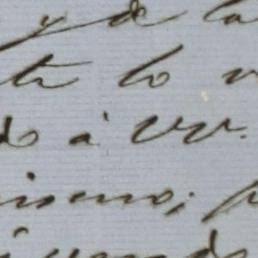 y de la
te lo v
do á VV.
ismo; p